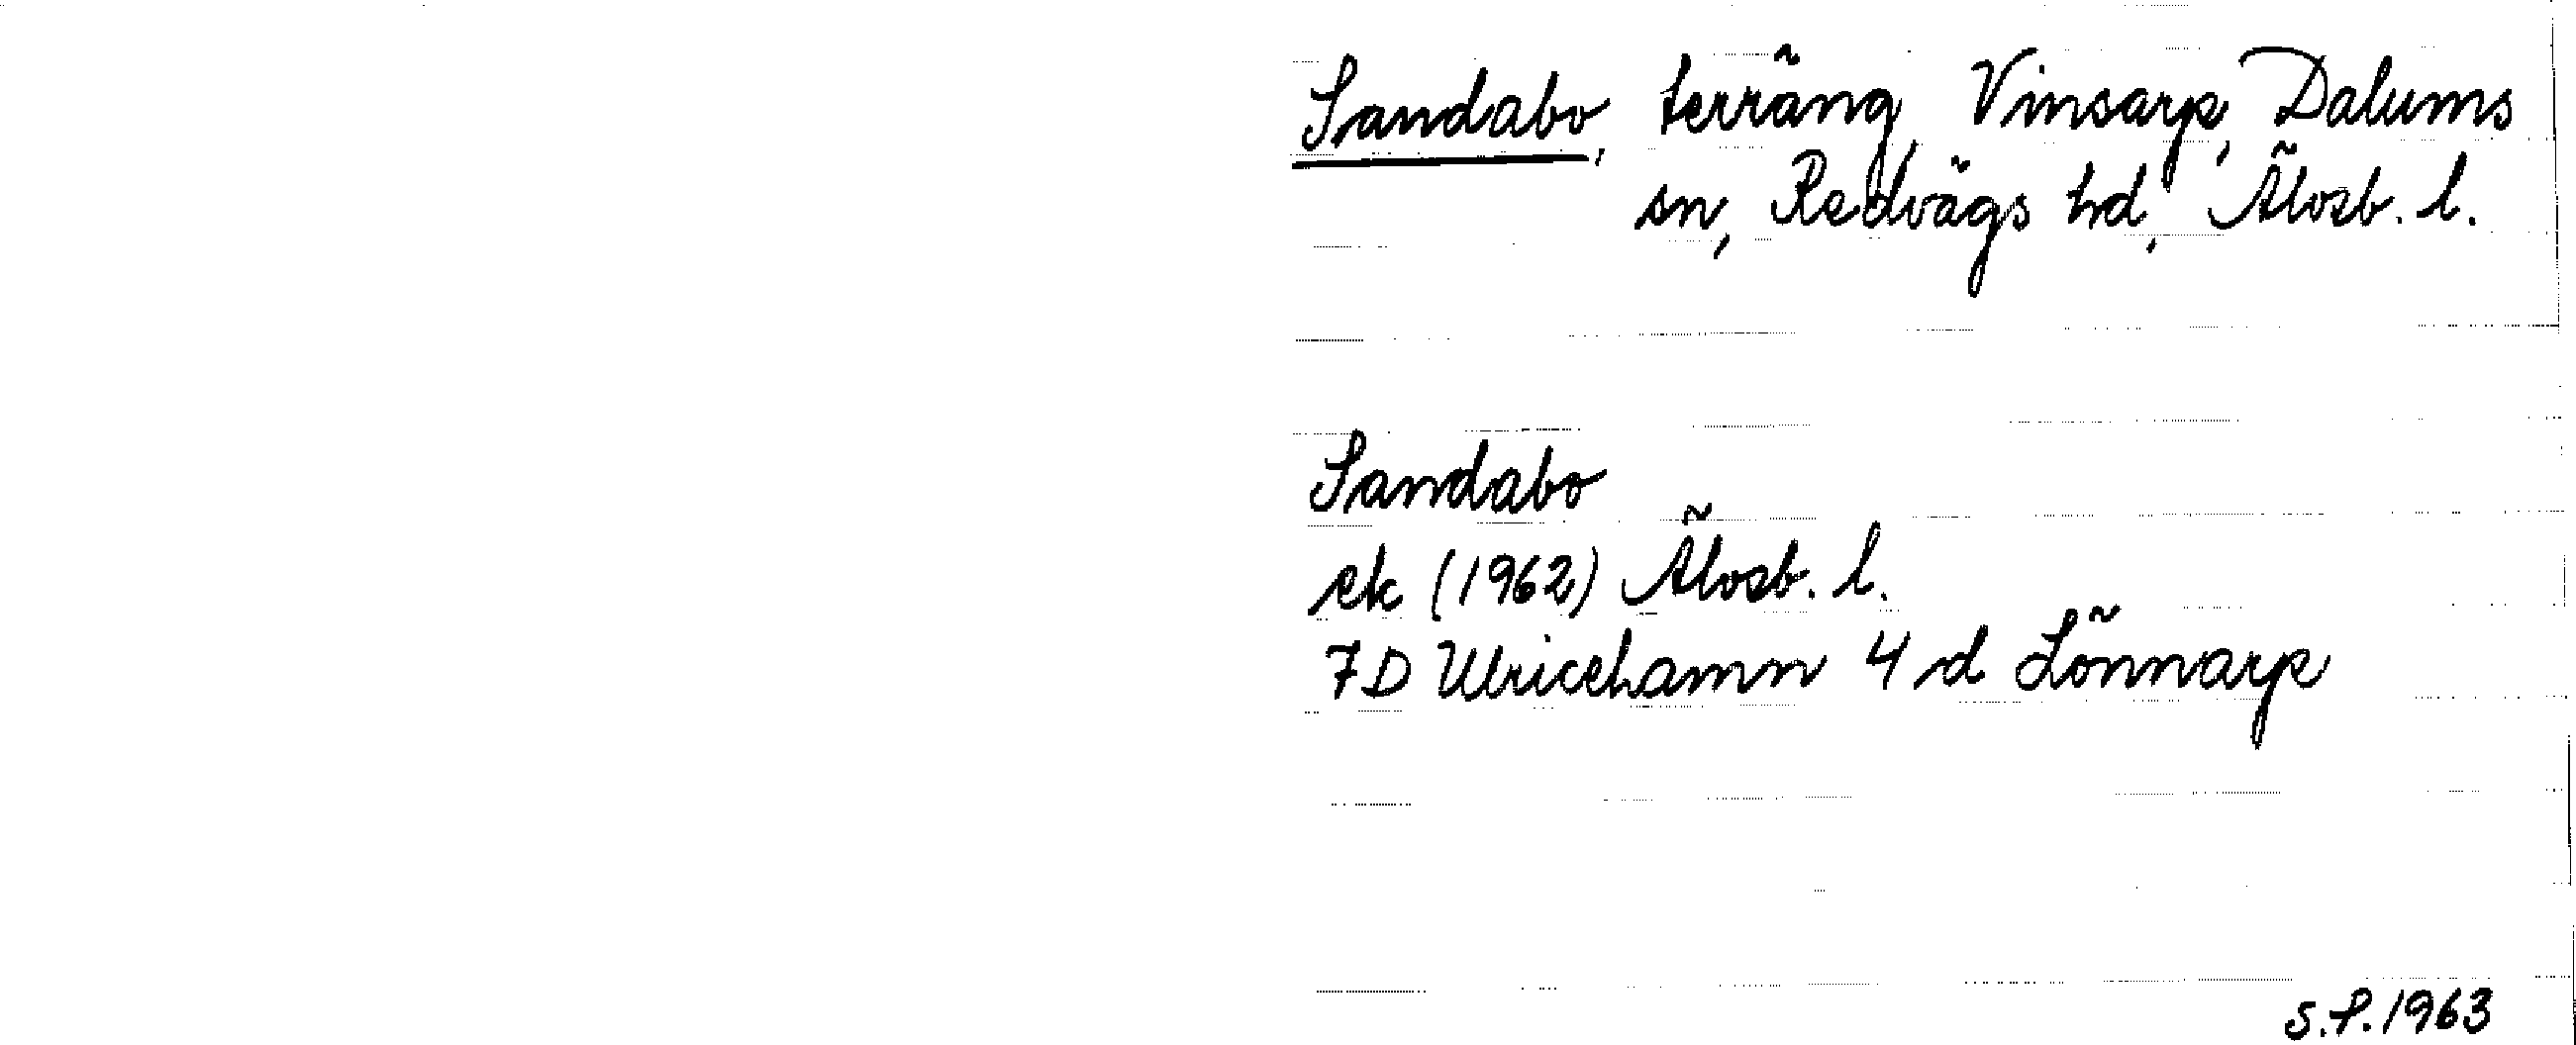 Sandabo, terräng, Vinsarp, Dalums
sn, Redvägs hd, Älvsb. l.
Sandabo
ek (1962) Älvsb. l.
7D Ulricehamn 4 d Lönnarp
S.P. 1963